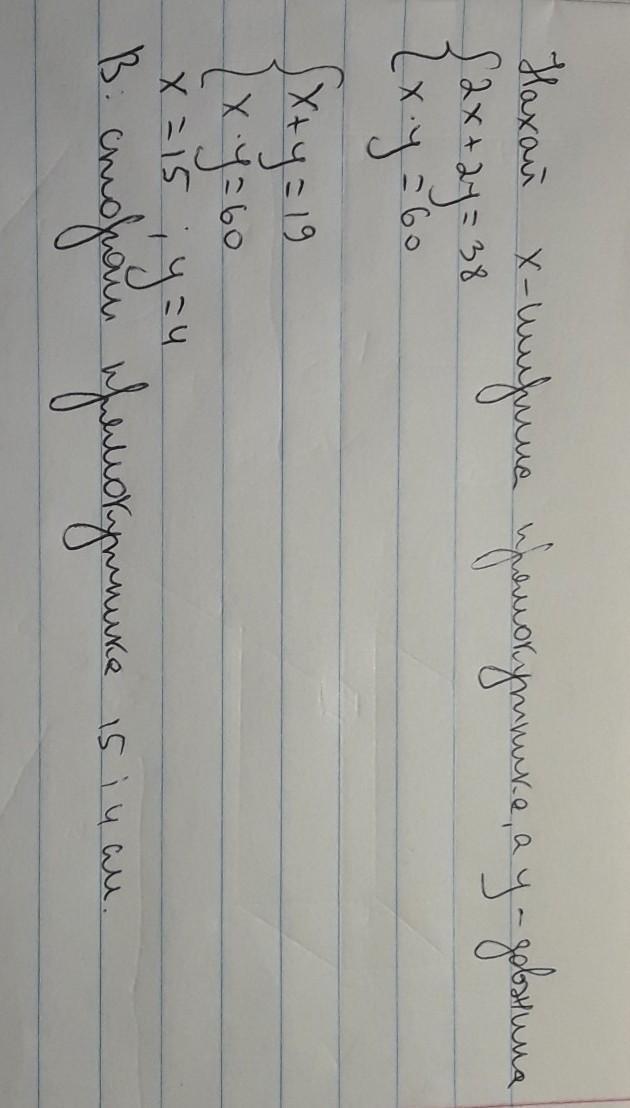 Нахай x - ширина прямокутника, а y - довжина
{ 2x + 2y = 38
{ x · y = 60
{ x + y = 19
{ x · y = 60
x = 15 ; y = 4
В: сторони прямокутника 15 і 4 см.